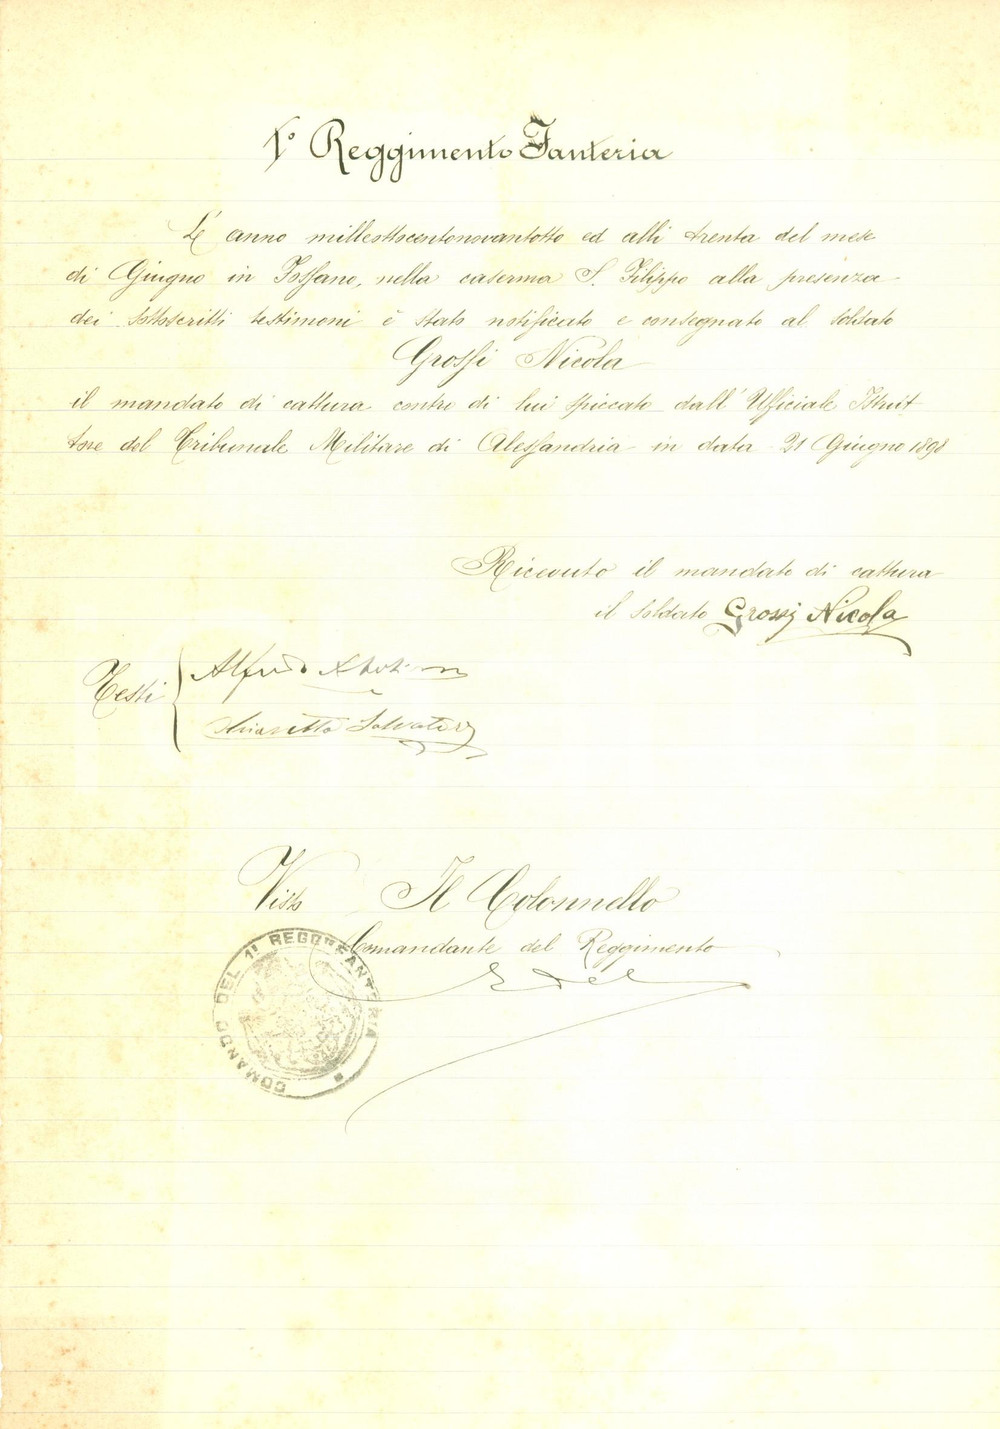 1° Reggimento Fanteria
L'anno milleottocentonovantotto ed alli trenta del mese
di Giugno in Fossano, nella caserma S. Filippo alla presenza
dei sottoscritti testimoni è stato notificato e consegnato al soldato
Grossi Nicola
il mandato di cattura contro di lui spiccato dall'Ufficiale Istrut
tore del Tribunale Militare di Alessandria in data 21 Giugno 1898
Ricevuto il mandato di cattura
il soldato Grossi Nicola
Testi
Alfredo
Salvatore
Visto Il Colonnello
Comandante del Reggimento
COMANDO DEL 1° REGG.TO FANTERIA